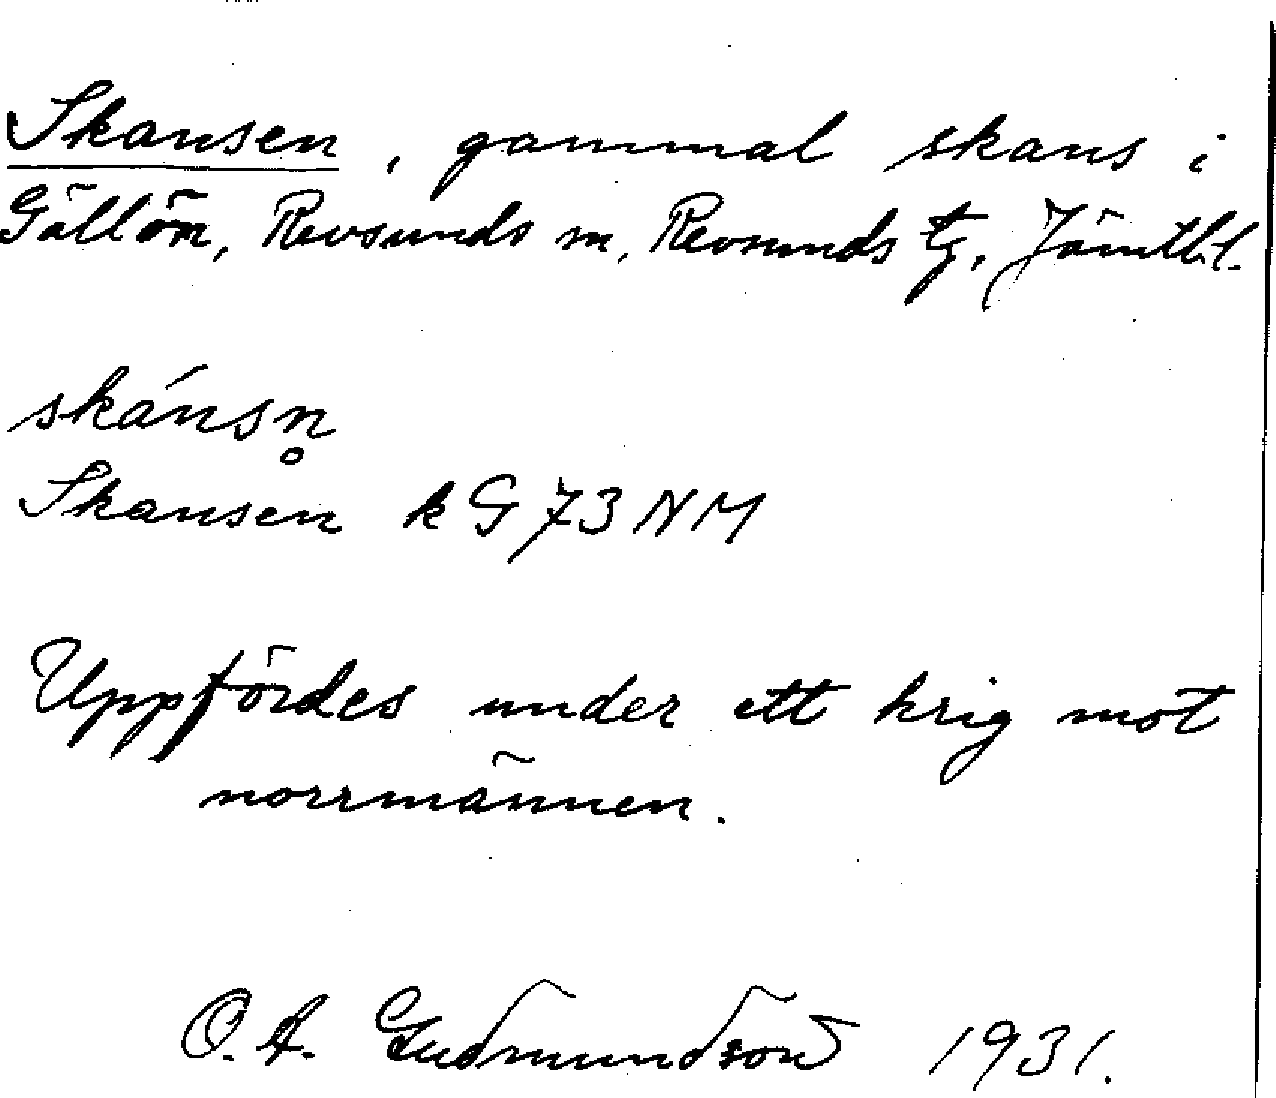 Skansen, gammal skans i
Gällön, Revsunds sn, Revsunds tg, Jämtl. l.
skánsn̥
Skansen k G 73 NM
Uppfördes under ett krig mot
norrmännen.
O. A. Gudmundson 1931.